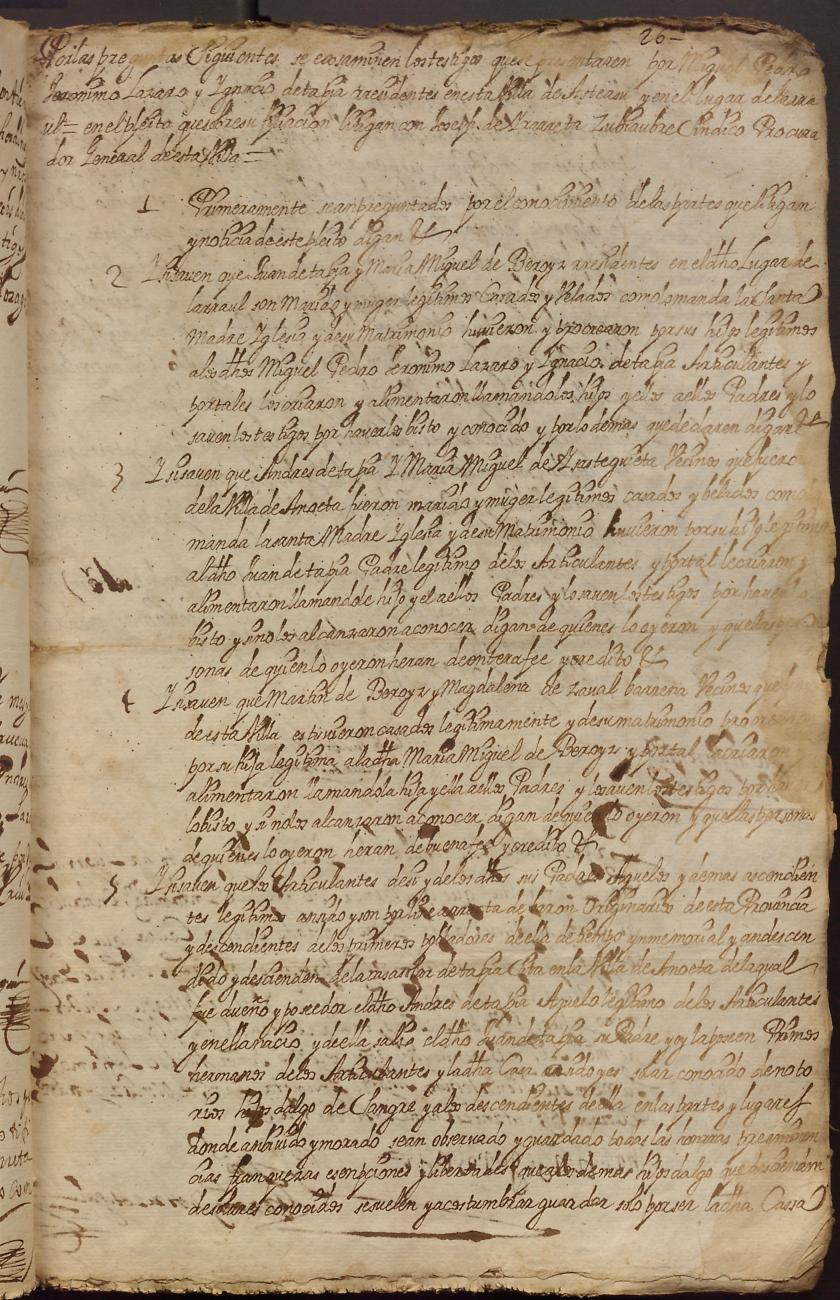 26-
Por las preguntas Siguientes se examinen los testigos que se presentaren por Miguel Pedro
Jeronimo Lazaro y Ygnacio de tapia rresidentes en esta Villa de Asteasu y en el lugar de larra
ul = en el pleito que sobre su filiacion litigan con Joseph de Yrarreta Zubiaubre Sindico Procura
dor General de esta Villa =
1 Primeramente sean preguntados por el conocimiento de las partes que litigan
y noticia de este pleito digan &
2 Y si saven que Juan de tapia y Maria Miguel de Beroyz rresidentes en el dho Lugar de
larraul son Marido y muger legitimos Casados y Velados como lo manda la Santa
Madre Yglesia y de su Matrimonio huvieron y procrearon por sus hijos legitimos
a los dhos Miguel Pedro Jeronimo Lazaro y Ygnacio de tapia Articulantes y
por tales los criaron y alimentaron llamandolos hijos y ellos a ellos Padres y lo
saven los testigos por haverlos bisto y conocido y por lo demas que declaren digan &
3 Y si saven que Andres de tapia Y Maria Miguel de Yrastegieta Vecinos que fuero
de la Villa de Anoeta fueron marido y muger legitimos casados y belados como
manda la santa Madre Yglesia y de su Matrimonio huvieron por su hijo legitimo
al dho Juan de tapia Padre legitimo de los Articulantes y por tal le criaron y
alimentaron llamandole hijo y el a ellos Padres y lo saven los testigos por haverlo
bisto y si no los alcanzaron a conocer digan de quienes lo oyeron y que las per
sonas de quien lo oyeron heran de entera fee y credito &
4 Y si saven que Martin de Beroyz y Magdalena de zaval barrena Vecinos que
de esta Villa estuvieron casados legitimamente y de su matrimonio procrearon
por su hija legitima a la dha Maria Miguel de Beroyz y por tal la criaron
alimentaron llamandola hija y ella a ellos Padres y lo saven los testigos por
lo bisto y si no los alcanzaron a conocer digan de quien lo oyeron y que las personas
de quienes lo oyeron heran de buena fee y credito &
5 Y si saven que los Articulantes de si y de los dhos sus Padres Aguelos y demas ascendien
tes legitimos an sido y son por linea rrecta de baron Originarios de esta Provincia
y descendientes de los primeros pobladores de ella de tiempo ynmemorial y an descen
dido y descienden de la casa solar de tapia Sita en la Villa de Anoeta de la qual
fue dueño y poseedor el dho Andres de tapia Aguelo legitimo de los Articulantes
y en ella nacio y de ella salio el dho Juan de tapia su Padre y oy la poseen Primos
hermanos de los Articulantes y la dha Casa a sido y es solar conocido de noto
rios hijos dalgo de Sangre y a los descendientes de ella en las partes y lugares
donde an bivido y morado se an observado y guardado todas las honrras preeminen
cias franquezas esenpciones y libertades que a los demas hijos dalgo que descienden
de solares conocidos se suelen y acostumbran guardar solo por ser la dha Cassa